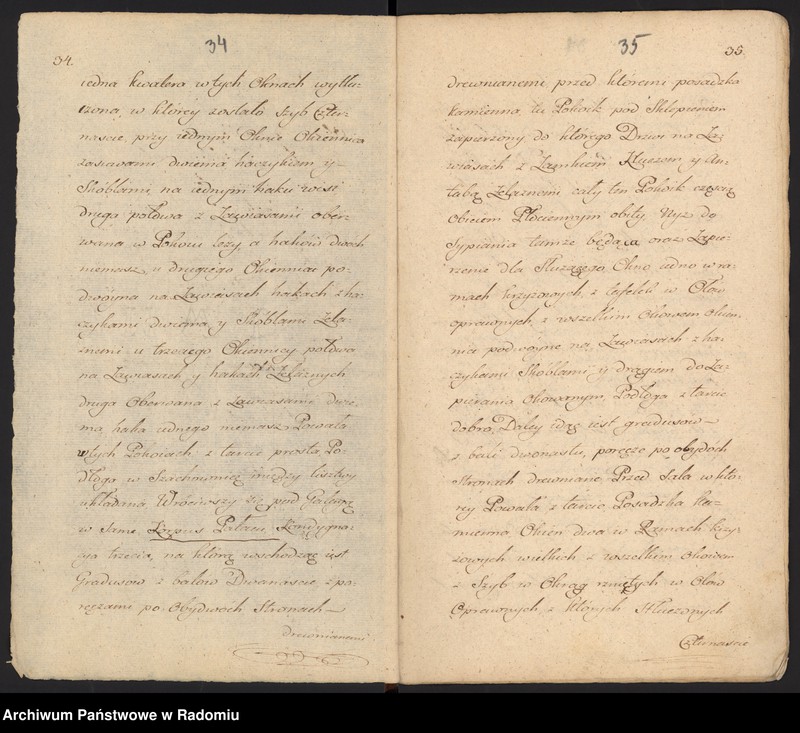 34.
34
iedna kwatera wtych Oknach wytłu-
czona, w którey zostało szyb Czter-
nascie, przy iednym Oknie Okiennica
zasuwami dwiema haczykiem y
Skoblami na iednym haku wisi
druga połowa z Zawiasami ober-
wana w Pokoiu leży a haków dwoch
niemasz, u drugiego Okiennica po-
dwoyna na Zawiasach hakach z ha-
czykami dwiema y Skoblami Żela-
znemi u trzeciego Okiennicy połowa
na Zawiasach y hakach Żelaznych
druga Oberwana z Zawiasami dwie-
ma, haka iednego niemasz. Powała
wtych Pokoiach z tarcic prosta Po-
dłoga w Szachownicę między lisztwy
układana. Wróciwszy się pod Gałeryą
w same Korpus Pałacu, Kondygna-
cya trzecia, na którą wschodząc iest
Gradusow z balow Dwanascie, z po-
ręczami po Obydwoch Stronach
drewnianemi
35
35.
drewnianemi, przed któremi posadzka
kamienna, tu Pokoik pod Sklepieniem
zapierzony do którego Drzwi na Za-
wiasach z Zamkiem Kluczem y An-
tabą Żelaznemi cały ten Pokoik częścią
Obiciem Płociennym obity. Nyż do
Sypiania tamże będąca oraz Zapie-
rzenie dla Służącego, Okno iedno w ra-
mach krzyżowych, z tafelek w Ołow
oprawnych, z wszelkim Okowem Okien-
nia podwoyne na Zawiasach z ha-
czykami Skoblami y drągiem do Za-
pierania Okowanym, Podłoga z tarcic
dobra, Daley idąc iest gradusow
z bali dwonastu, poręcze po obydwoch
Stronach drewniane. Przed Sala w któ-
rey Powała z tarcic, Posadzka ka-
mienna, Okien dwa w Ramach krzy-
żowych wielkich z wszelkim Okowem
z Szyb w Okrąg rzniętych w Ołow
Oprawnych, z których tłuczonych
Czternascie
Archiwum Państwowe w Radomiu